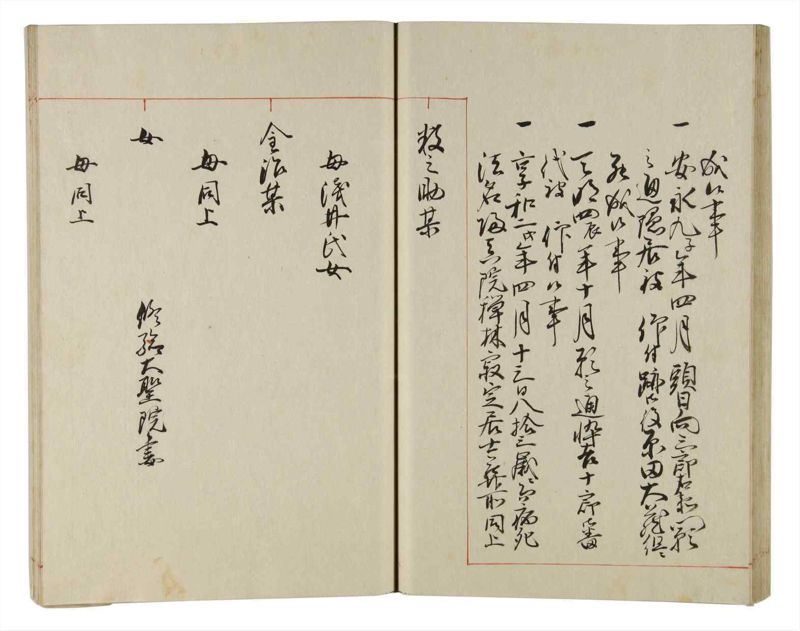 成候事
一 安永九子年四月頭日向三郎右衛門願
之通隠居被 仰付跡御役原田大蔵
成候事
一 天明四辰年十月願之通悴吉十郎番
代被 仰付候事
一 享和二戌年四月十三日八拾三歳ニ而病死
法名 院禅林寂定居士葬所同上
数之助某
母浅井氏女
金治某
母同上
女
修験大聖院妻
母同上